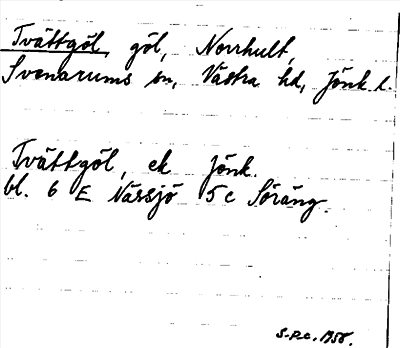 Tvättgöl, göl, Norrhult,
Svenarums sn, Västra hd, Jönk. l.
Tvättgöl, ek Jönk.
bl. 6 E Nässjö 5 c Söräng.
S.P.C. 1958.